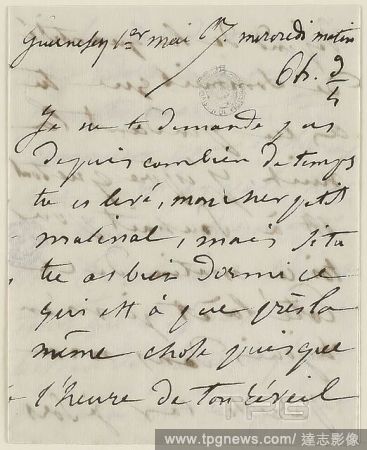 Guernesey 1er mai 67. mercredi matin
6h. 3/4
Je ne te demande pas
depuis combien de temps
tu es levé, mon cher petit
matinal, mais si tu
tu as bien dormi ce
qui est à que près la
même chose puisque
l'heure de ton réveil
TPG
www.tpgnews.com/達志影像